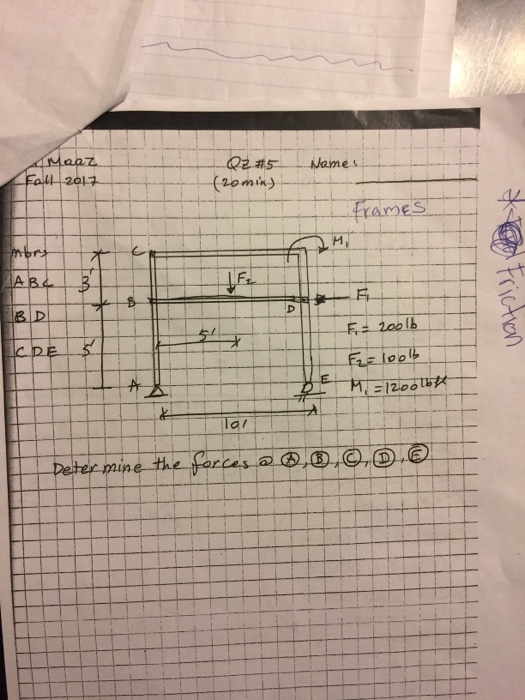 Maaz QZ #5 Name:
Fall 2017 (20 min)
Frames
* Friction
mbrs
ABC
BD
CDE
3'
5'
C
M₁
F₂
B
D
F₁
5'
A
E
10'
F₁ = 200 lb
F₂ = 100 lb
M₁ = 1200 lb
Determine the forces @ Ⓐ, Ⓑ, Ⓒ, Ⓓ, Ⓔ